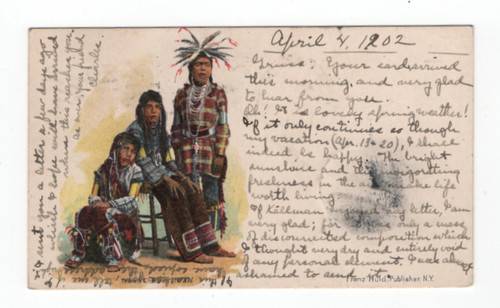 April 4, 1902
Gruss: Your card arrived
this morning, and very glad
to hear from you.
Oh! It is lovely spring weather!
If it only continues so through
my vacation (Apr. 15-20), I shall
indeed be happy. The bright
sunshine and the invigorating
freshness in the air make life
worth living.
If Kellman my letter, I am
very glad; for it was only a mass
of disconnected composition which
I thought very dry and entirely void
of any personal element. I was almost
ashamed to send it.
I sent you a letter a few days ago
which I hope will have arrived
when this reaches you.
As ever, your friend
Charles.
Franz Huld, Publisher, N.Y.